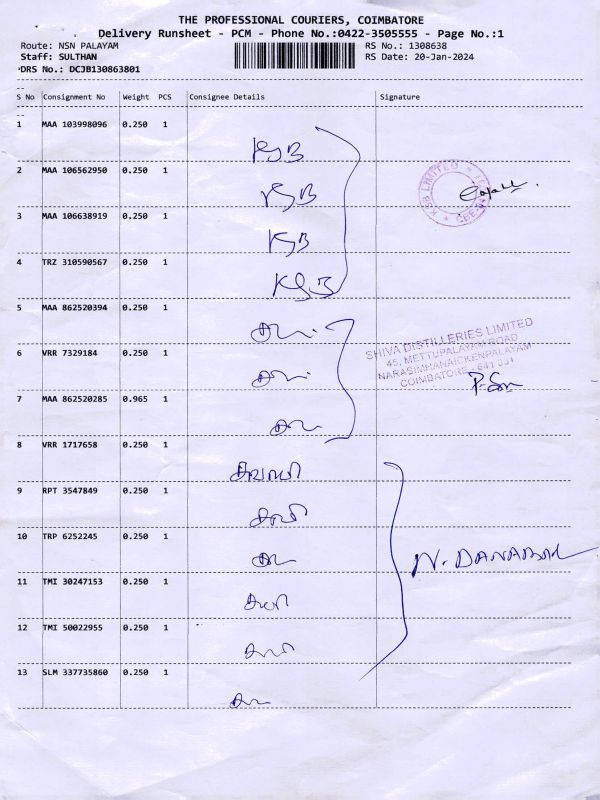 THE PROFESSIONAL COURIERS, COIMBATORE
Delivery Runsheet - PCM - Phone No.:0422-3505555 - Page No.:1
Route: NSN PALAYAM RS No.: 1308638
Staff: SULTHAN RS Date: 20-Jan-2024
DRS No.: DCJB130863801
S No Consignment No Weight PCS Consignee Details Signature
1 MAA 103998096 0.250 1 KSB
2 MAA 106562950 0.250 1 KSB
KSB LIMITED
3 MAA 106638919 0.250 1 KSB
4 TRZ 310590567 0.250 1 KSB
5 MAA 862520394 0.250 1
SHIVA DISTILLERIES LIMITED
45, METTUPALAYAM ROAD
6 VRR 7329184 0.250 1
NARASIMHANAICKENPALAYAM
COIMBATORE - 641 031
7 MAA 862520285 0.965 1
8 VRR 1717658 0.250 1
9 RPT 3547849 0.250 1
10 TRP 6252245 0.250 1
N. DANABAL
11 TMI 30247153 0.250 1
12 TMI 50022955 0.250 1
13 SLM 337735860 0.250 1